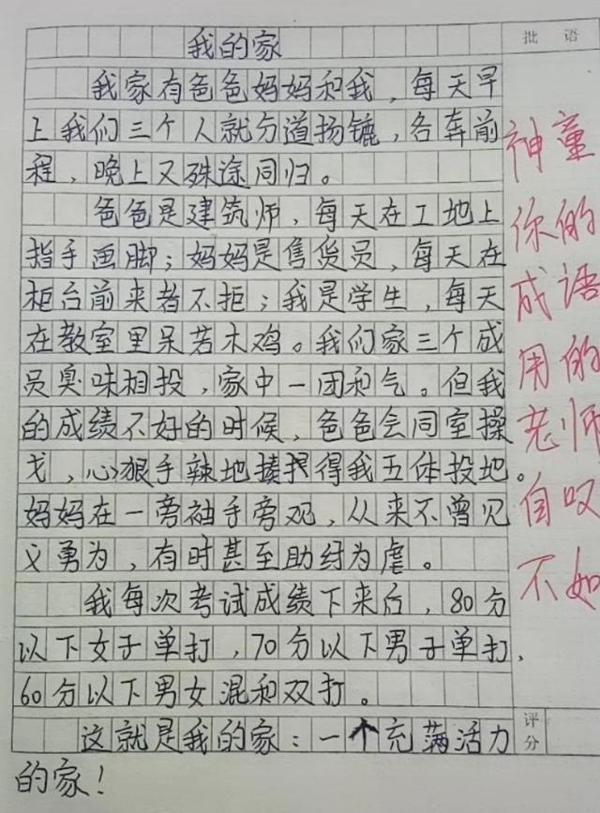 我的家
我家有爸爸妈妈和我，每天早
上我们三个人就分道扬镳，各奔前
程，晚上又殊途同归。
爸爸是建筑师，每天在工地上
指手画脚；妈妈是售货员，每天在
柜台前来者不拒；我是学生，每天
在教室里呆若木鸡。我们家三个成
员臭味相投，家中一团和气。但我
的成绩不好的时候，爸爸会同室操
戈，心狠手辣地揍得我五体投地。
妈妈在一旁袖手旁观，从来不曾见
义勇为，有时甚至助纣为虐。
我每次考试成绩下来后，80分
以下女子单打，70分以下男子单打，
60分以下男女混和双打。
这就是我的家：一个充满活力
的家！
批语
神童
你的
成语
用的
老师
自叹
不如
评
分